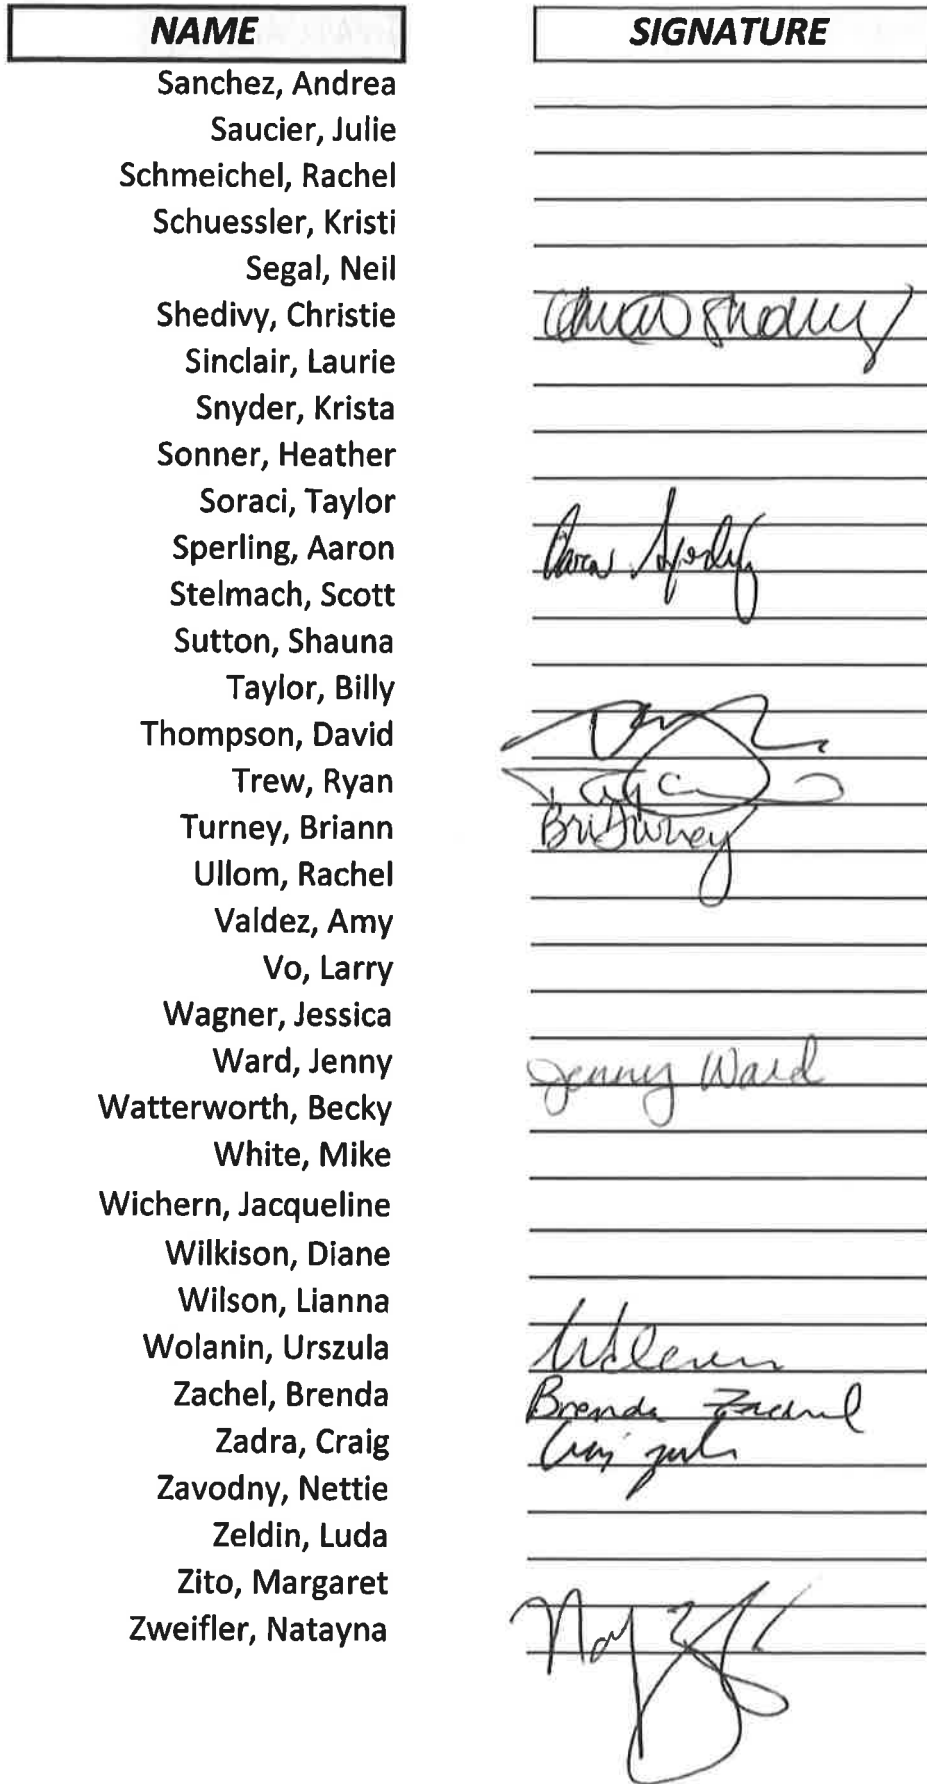 NAME SIGNATURE
Sanchez, Andrea
Saucier, Julie
Schmeichel, Rachel
Schuessler, Kristi
Segal, Neil
Shedivy, Christie
Sinclair, Laurie
Snyder, Krista
Sonner, Heather
Soraci, Taylor
Sperling, Aaron
Stelmach, Scott
Sutton, Shauna
Taylor, Billy
Thompson, David
Trew, Ryan
Turney, Briann Bri Turney
Ullom, Rachel
Valdez, Amy
Vo, Larry
Wagner, Jessica
Ward, Jenny Jenny Ward
Watterworth, Becky
White, Mike
Wichern, Jacqueline
Wilkison, Diane
Wilson, Lianna
Wolanin, Urszula
Zachel, Brenda Brenda Zachel
Zadra, Craig
Zavodny, Nettie
Zeldin, Luda
Zito, Margaret
Zweifler, Natayna